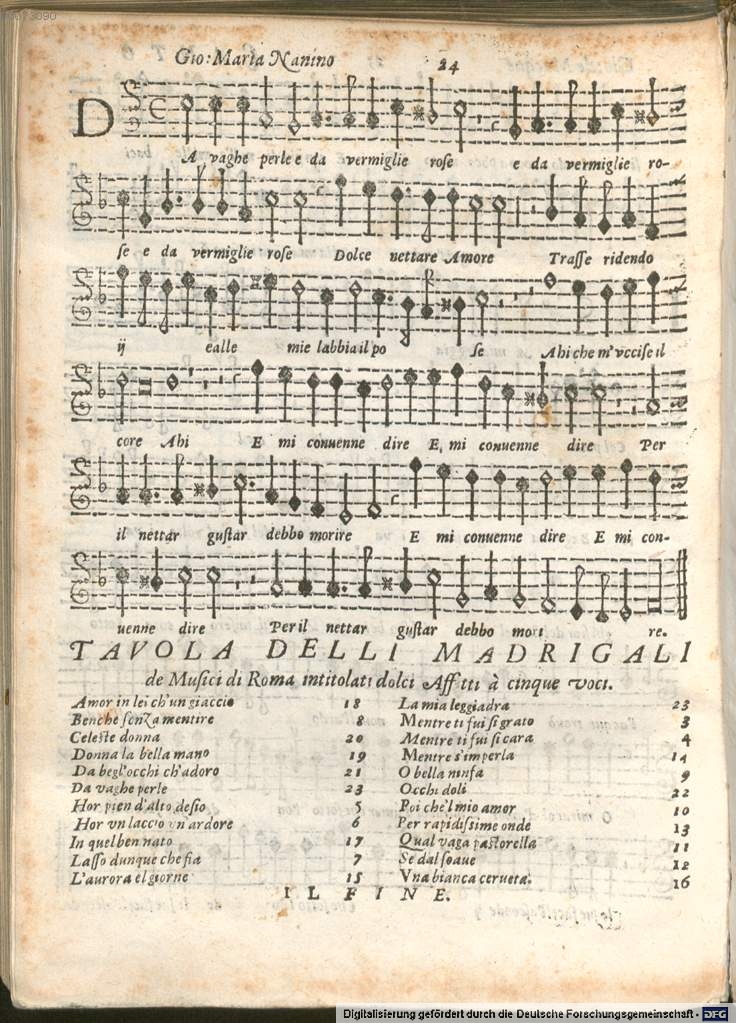 Gio: Maria Nanino 24
D A vaghe perle e da vermiglie rose e da vermiglie ro-
se e da vermiglie rose Dolce nettare Amore Trasse ridendo
ij ealle mie labbia il po se Ahi che m'vccise il
core Ahi E mi conuenne dire E, mi conuenne dire Per
il nettar gustar debbo morire E mi conuenne dire E mi con-
uenne dire Per il nettar gustar debbo mori re.
TAVOLA DELLI MADRIGALI
de Musici di Roma intitolati dolci Affetti à cinque voci.
Amor in lei ch'un giaccio 18
Benche senza mentire 8
Celeste donna 20
Donna la bella mano 19
Da begl'occhi ch'adoro 21
Da vaghe perle 23
Hor pien d'alto desio 5
Hor vn laccio vn'ardore 6
In quel ben nato 17
Lasso dunque che fia 7
L'aurora el giorne 15
La mia leggiadra 23
Mentre ti fui si grato 3
Mentre ti fui si cara 4
Mentre s'imperla 14
O bella ninfa 9
Occhi doli 22
Poi che'l mio amor 10
Per rapidissime onde 13
Qual vaga pastorella 11
Se dal soaue 12
Vna bianca cerueta. 16
IL FINE.
Digitalisierung gefördert durch die Deutsche Forschungsgemeinschaft - DFG